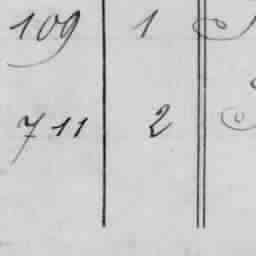 109 1
711 2